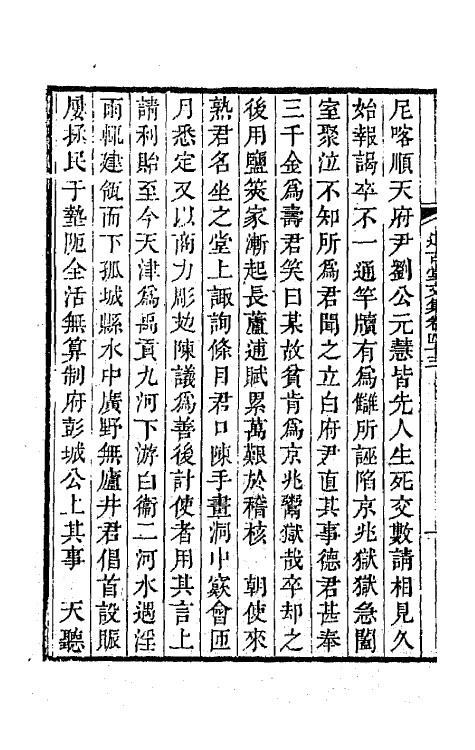 尼喀順天府尹劉公元慧皆先人生死交數請相見久
始報謁卒不一通竿牘有爲讎所誣陷京兆獄獄急闔
室聚泣不知所爲君聞之立白府尹直其事德君甚奉
三千金爲壽君笑曰某故貧肯爲京兆鬻獄哉卒却之
後用鹽筴家漸起長蘆逋賦累萬艱於稽核　朝使來
熟君名坐之堂上諏詢條目君口陳手畫洞中窾會匝
月悉定又以商力彫攰陳議爲善後計使者用其言上
請利貽至今天津爲禹貢九河下游白衞二河水遇淫
雨輒建瓴而下孤城縣水中廣野無廬井君倡首設賑
屢拯民于墊阨全活無算制府彭城公上其事　天聽
道古堂文集卷四十三